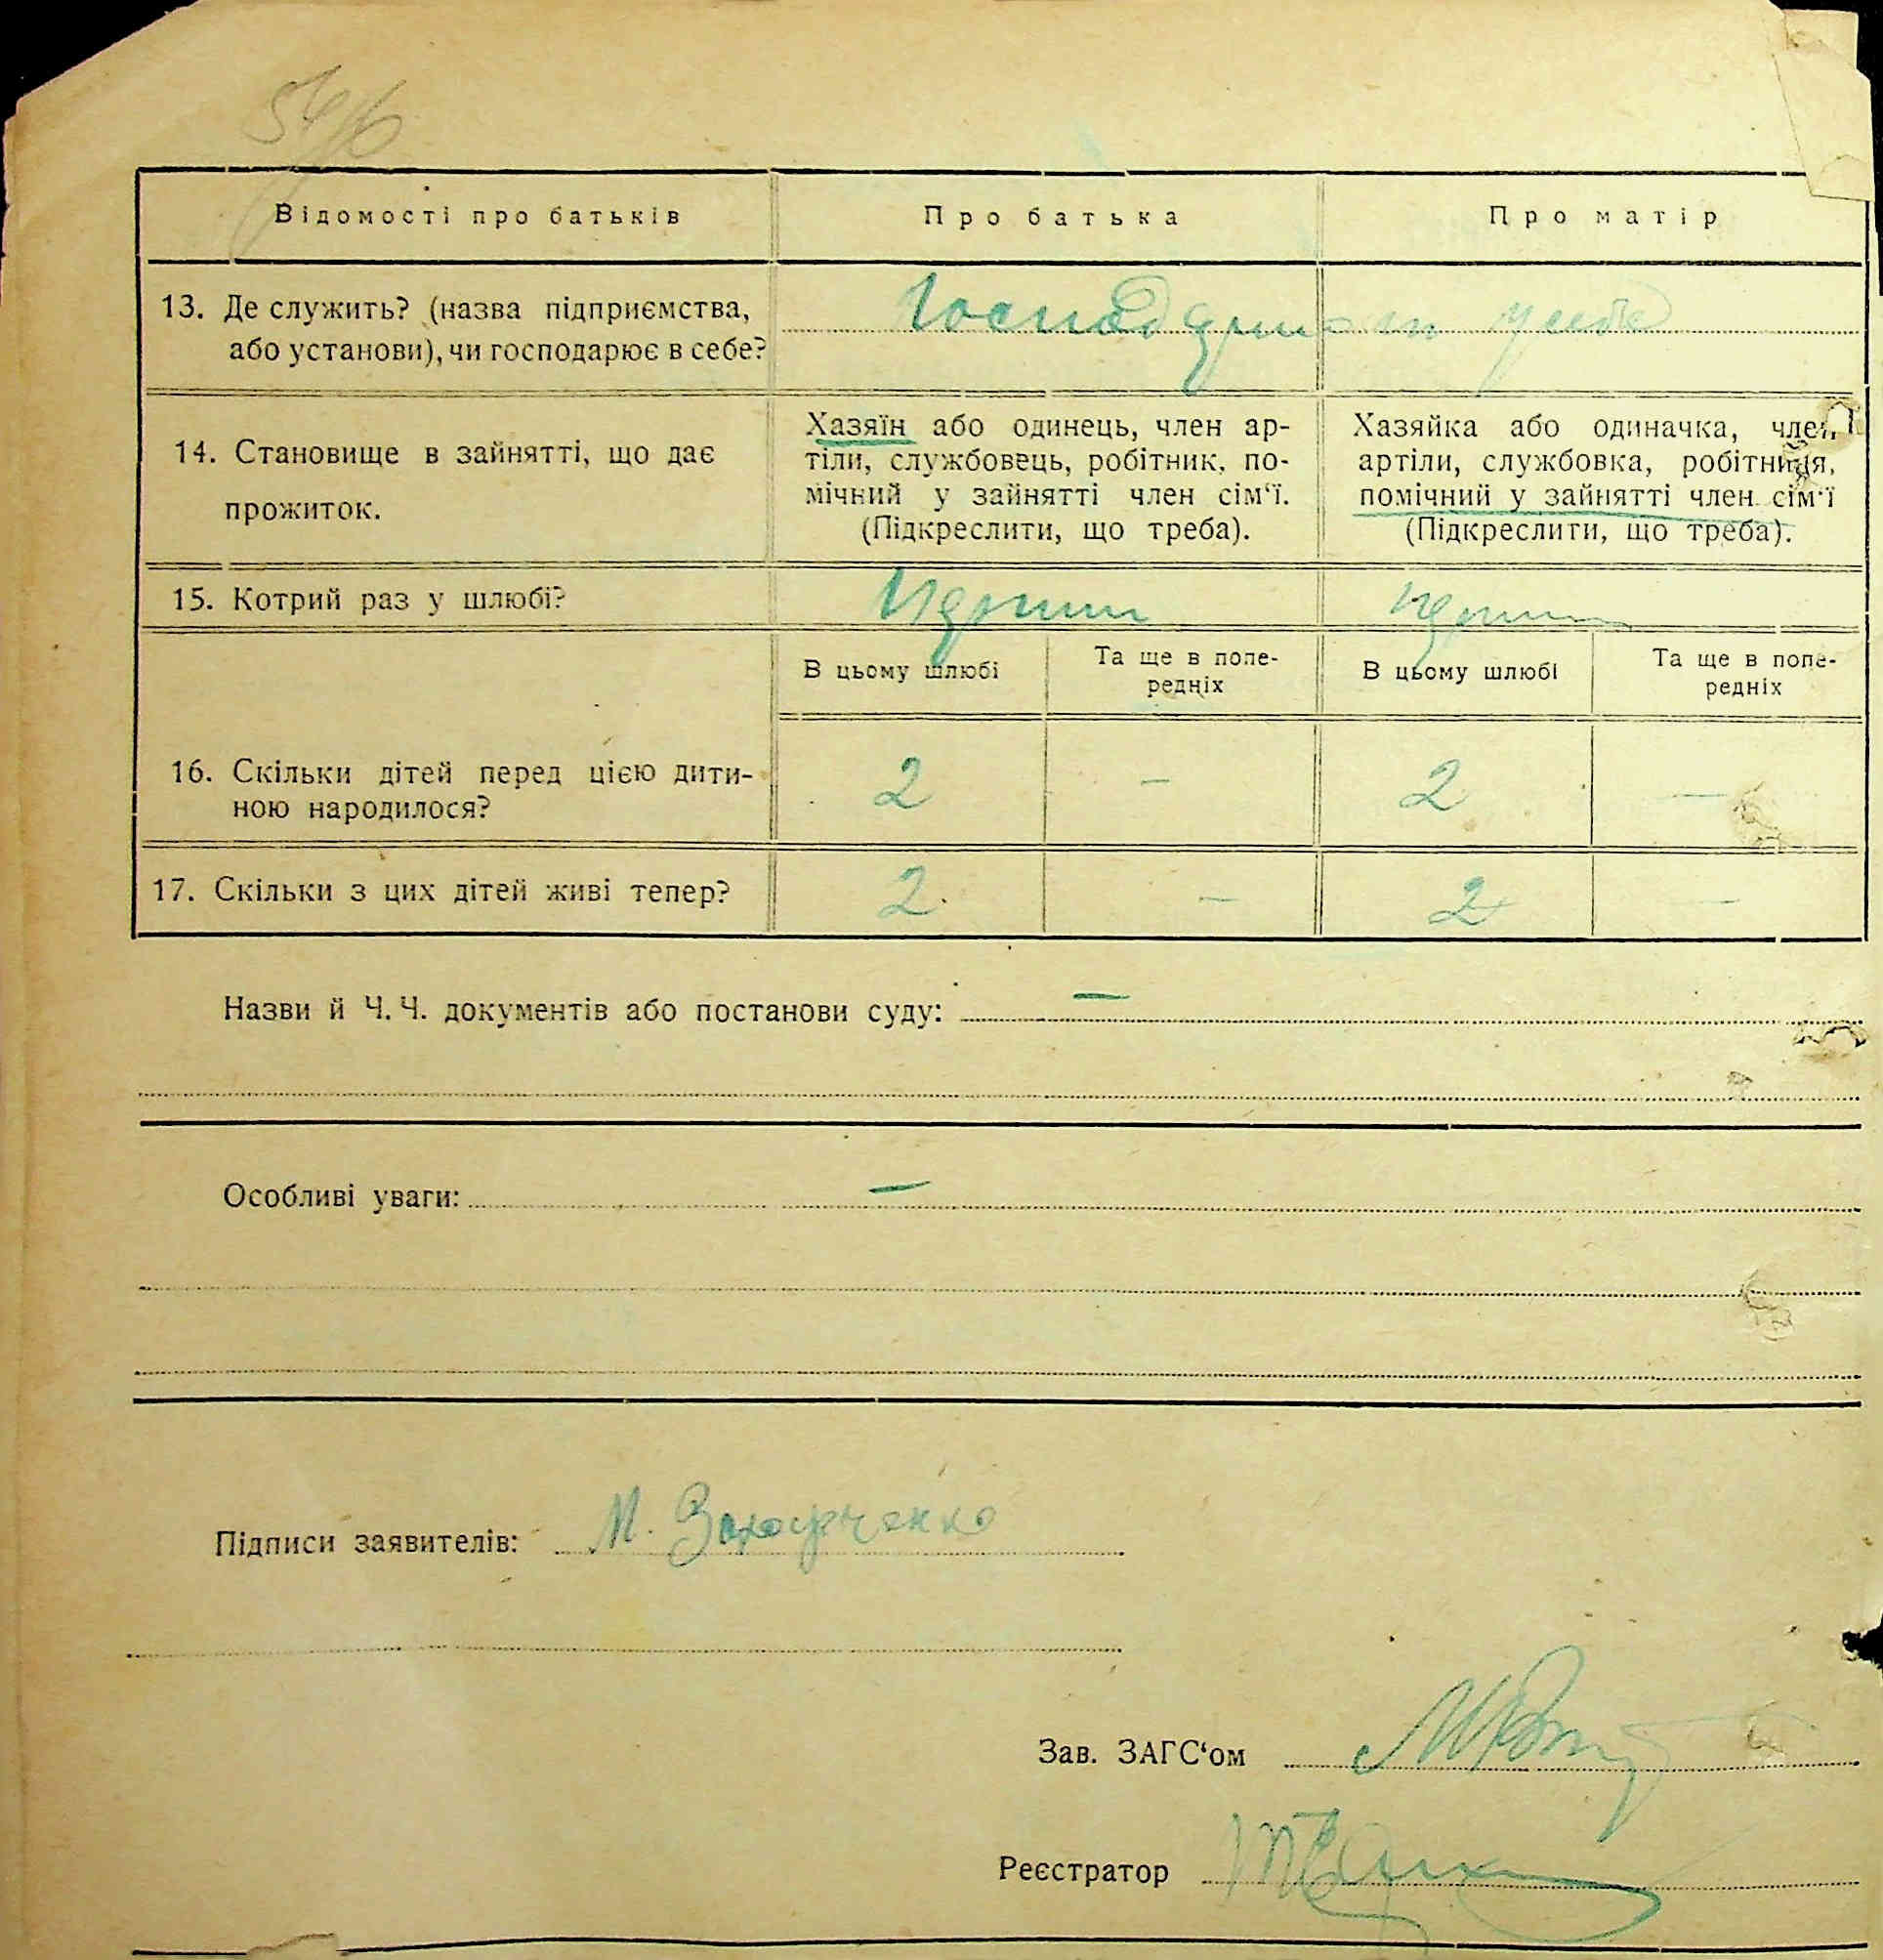 Відомості про батьків Про батька Про матір
13. Де служить? (назва підприємства,
або установи), чи господарює в себе?
14. Становище в зайнятті, що дає
прожиток.
Хазяїн або одинець, член ар-
тіли, службовець, робітник, по-
мічний у зайнятті член сім'ї.
(Підкреслити, що треба).
Хазяйка або одиначка, член
артіли, службовка, робітниця,
помічний у зайнятті член сім'ї
(Підкреслити, що треба).
15. Котрий раз у шлюбі?
В цьому шлюбі
Та ще в попе-
редніх
В цьому шлюбі
Та ще в попе-
редніх
16. Скільки дітей перед цією дити-
ною народилося?
2 — 2 —
17. Скільки з цих дітей живі тепер? 2 — 2 —
Назви й Ч. Ч. документів або постанови суду: —
Особливі уваги: —
Підписи заявителів: М.
Зав. ЗАГС'ом
Реєстратор